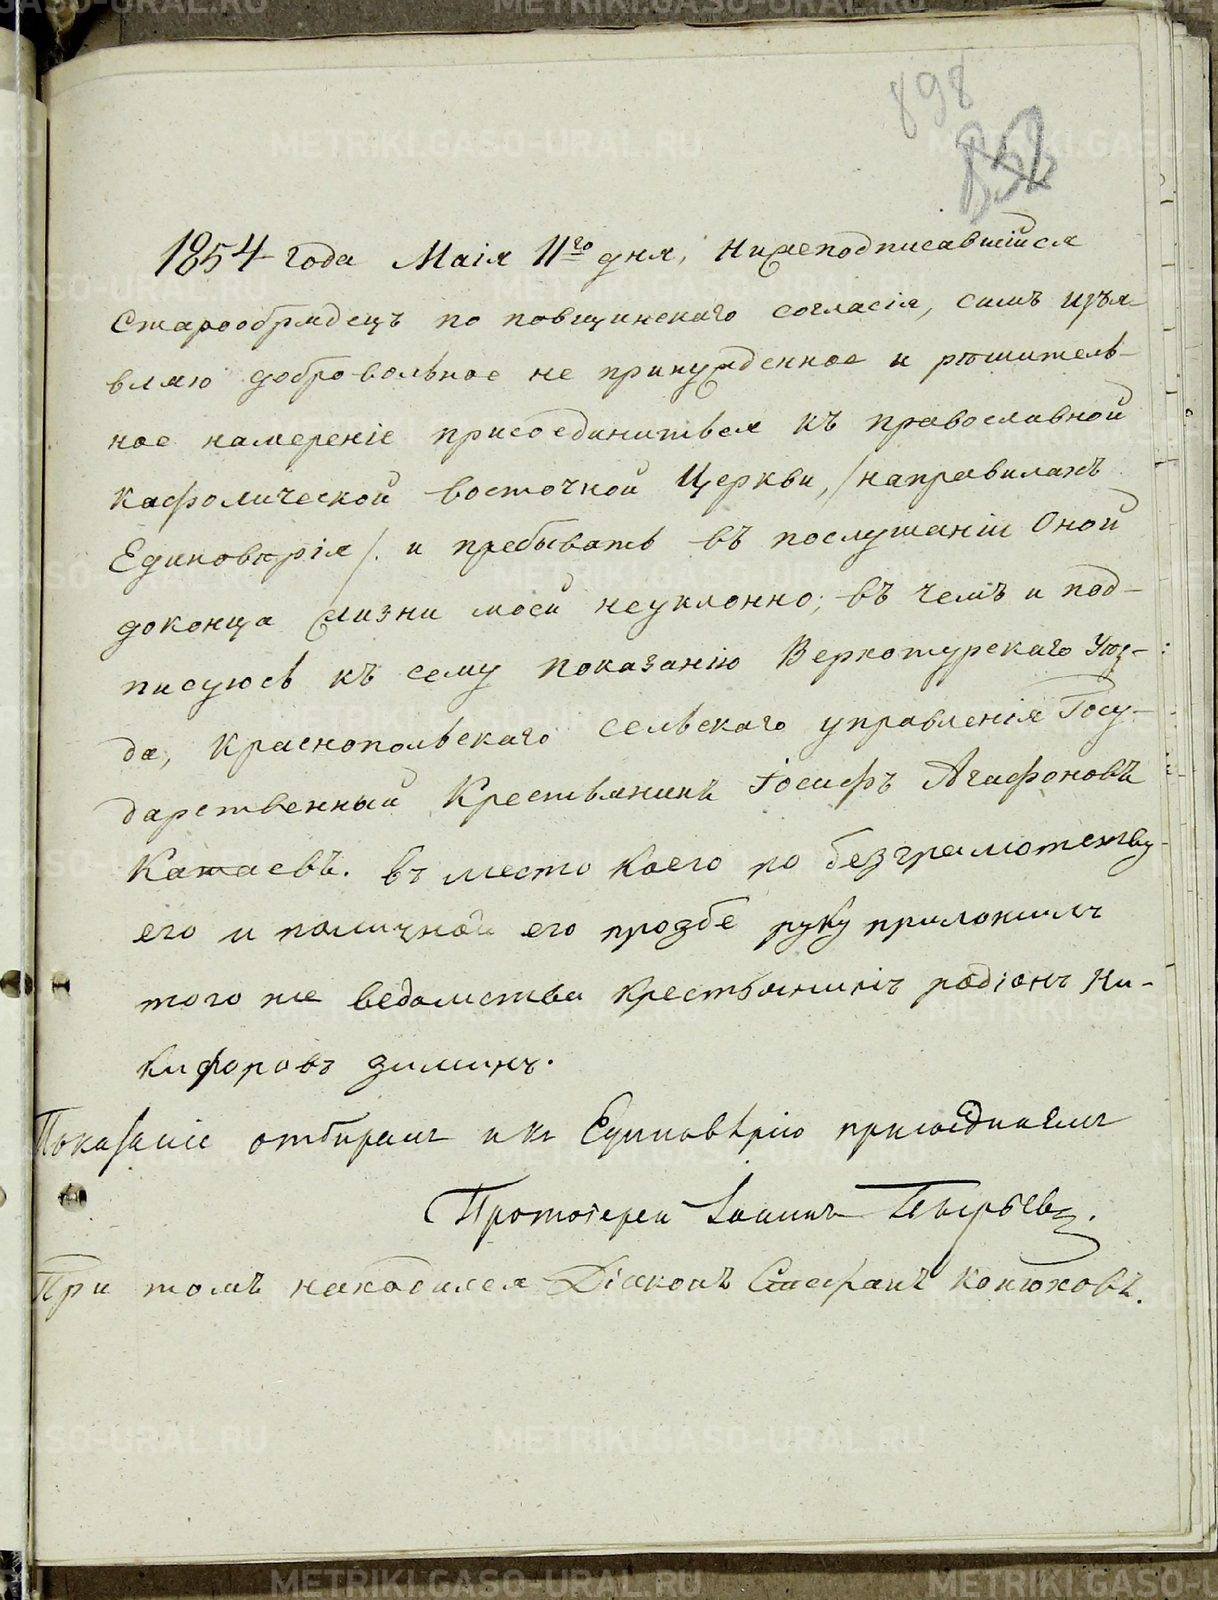 898
852
1854 года Маія 11го дня, нижеподписавшійся
Старообрядецъ по повщинскаго согласія, симъ изъя-
вляю добровольное не принужденное и рѣшитель-
ное намереніе присоединиться къ православной
Кафолической восточной Церкви, /направилахъ
Единовѣрія/. и пребывать въ послушаніи Оной
доконца жизни моей неуклонно; въ чемъ и под-
писуюсь къ сему показанію Верхотурскаго Уѣз-
да, Краснопольскаго сельскаго управленія Госу-
дарственный Крестьянинъ Іосифъ Агафоновъ
Катаевъ. въ место коего по безграмотству
его и поличной его прозбе руку приложилъ
того же ведомства крестьянинъ родіонъ Ни-
кифоровъ зиминъ.
Показаніе отбиралъ и къ Единовѣрію присоединялъ
Протоіерей Іоаннъ
При томъ находился Діаконъ Стефанъ Конюховъ.
METRIKI.GASO-URAL.RU